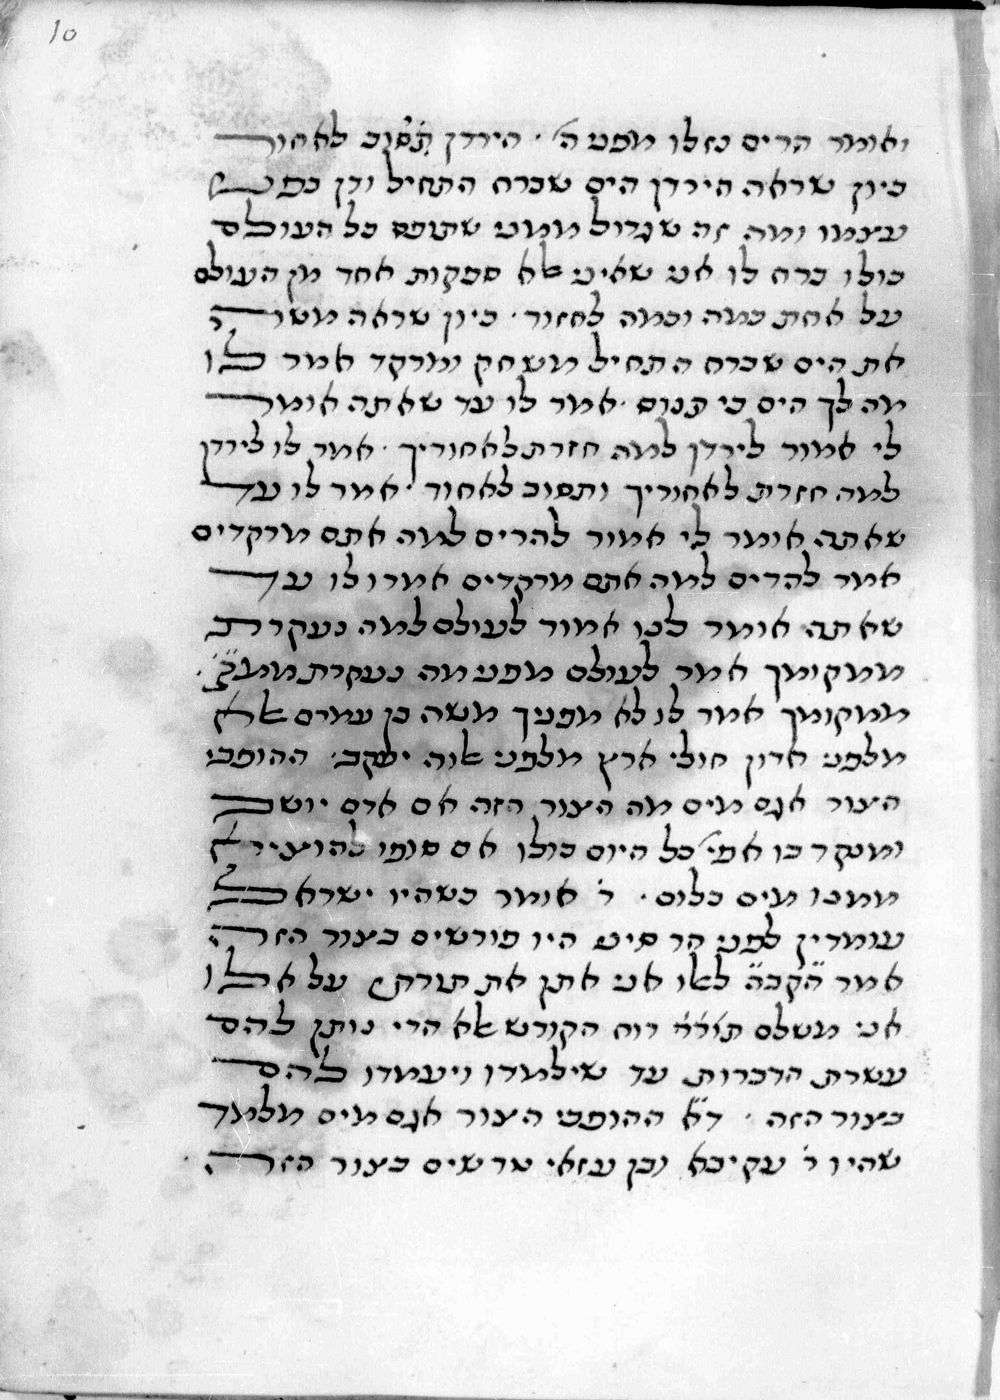 10
ואומר הרים נזלו מפני ה׳ · הירדן תסוב לאחור
כיון שראה הירדן הים שברח התחיל ודן בפני
עצמו ומה זה שגדול ממני שתופס כל העולם
כולו ברח לו אני שאיני אלא ספקות אחד מן העולם
על אחת כמה וכמה לחזור · כיון שראה משה
את הים שברח התחיל משחק ומרקד אמר לו
מה לך הים כי תנוס · אמר לו עד שאתה אומר
לי אמור לירדן למה חזרת לאחוריך · אמר לו לירדן
למה חזרת לאחוריך ותסוב לאחור · אמר לו עד
שאתה אומר לי אמור להרים למה אתם מרקדים
אמר להרים למה אתם מרקדים אמרו לו עד
שאתה אומר לנו אמור לעולם למה נעקרת
ממקומך אמר לעולם מפני מה נעקרת
ממקומך אמר לו לא מפניך משה בן עמרם אלא
מלפני אדון חולי ארץ מלפני אלוה יעקב · ההופכי
הצור אגם מים מה הצור הזה אם אדם יושב
ומנקר בו אפי׳ כל היום כולו אם סופו להוציא
ממנו מים כלום · ר׳ אומר כשהיו ישראל
עומדין לפני הר סיני היו פורשים בצור הזה
אמר הקב״ה לאלו אני אתן את תורתי על אלו
אני משלם רוח הקודש אלא הרי נותן להם
עשרת הדברות עד שילמדו ויעמדו להם
בצור הזה · ד״א ההופכי הצור אגם מים מלמד
שהיו ר׳ עקיבא ובן עזאי טרשים כצור הזה